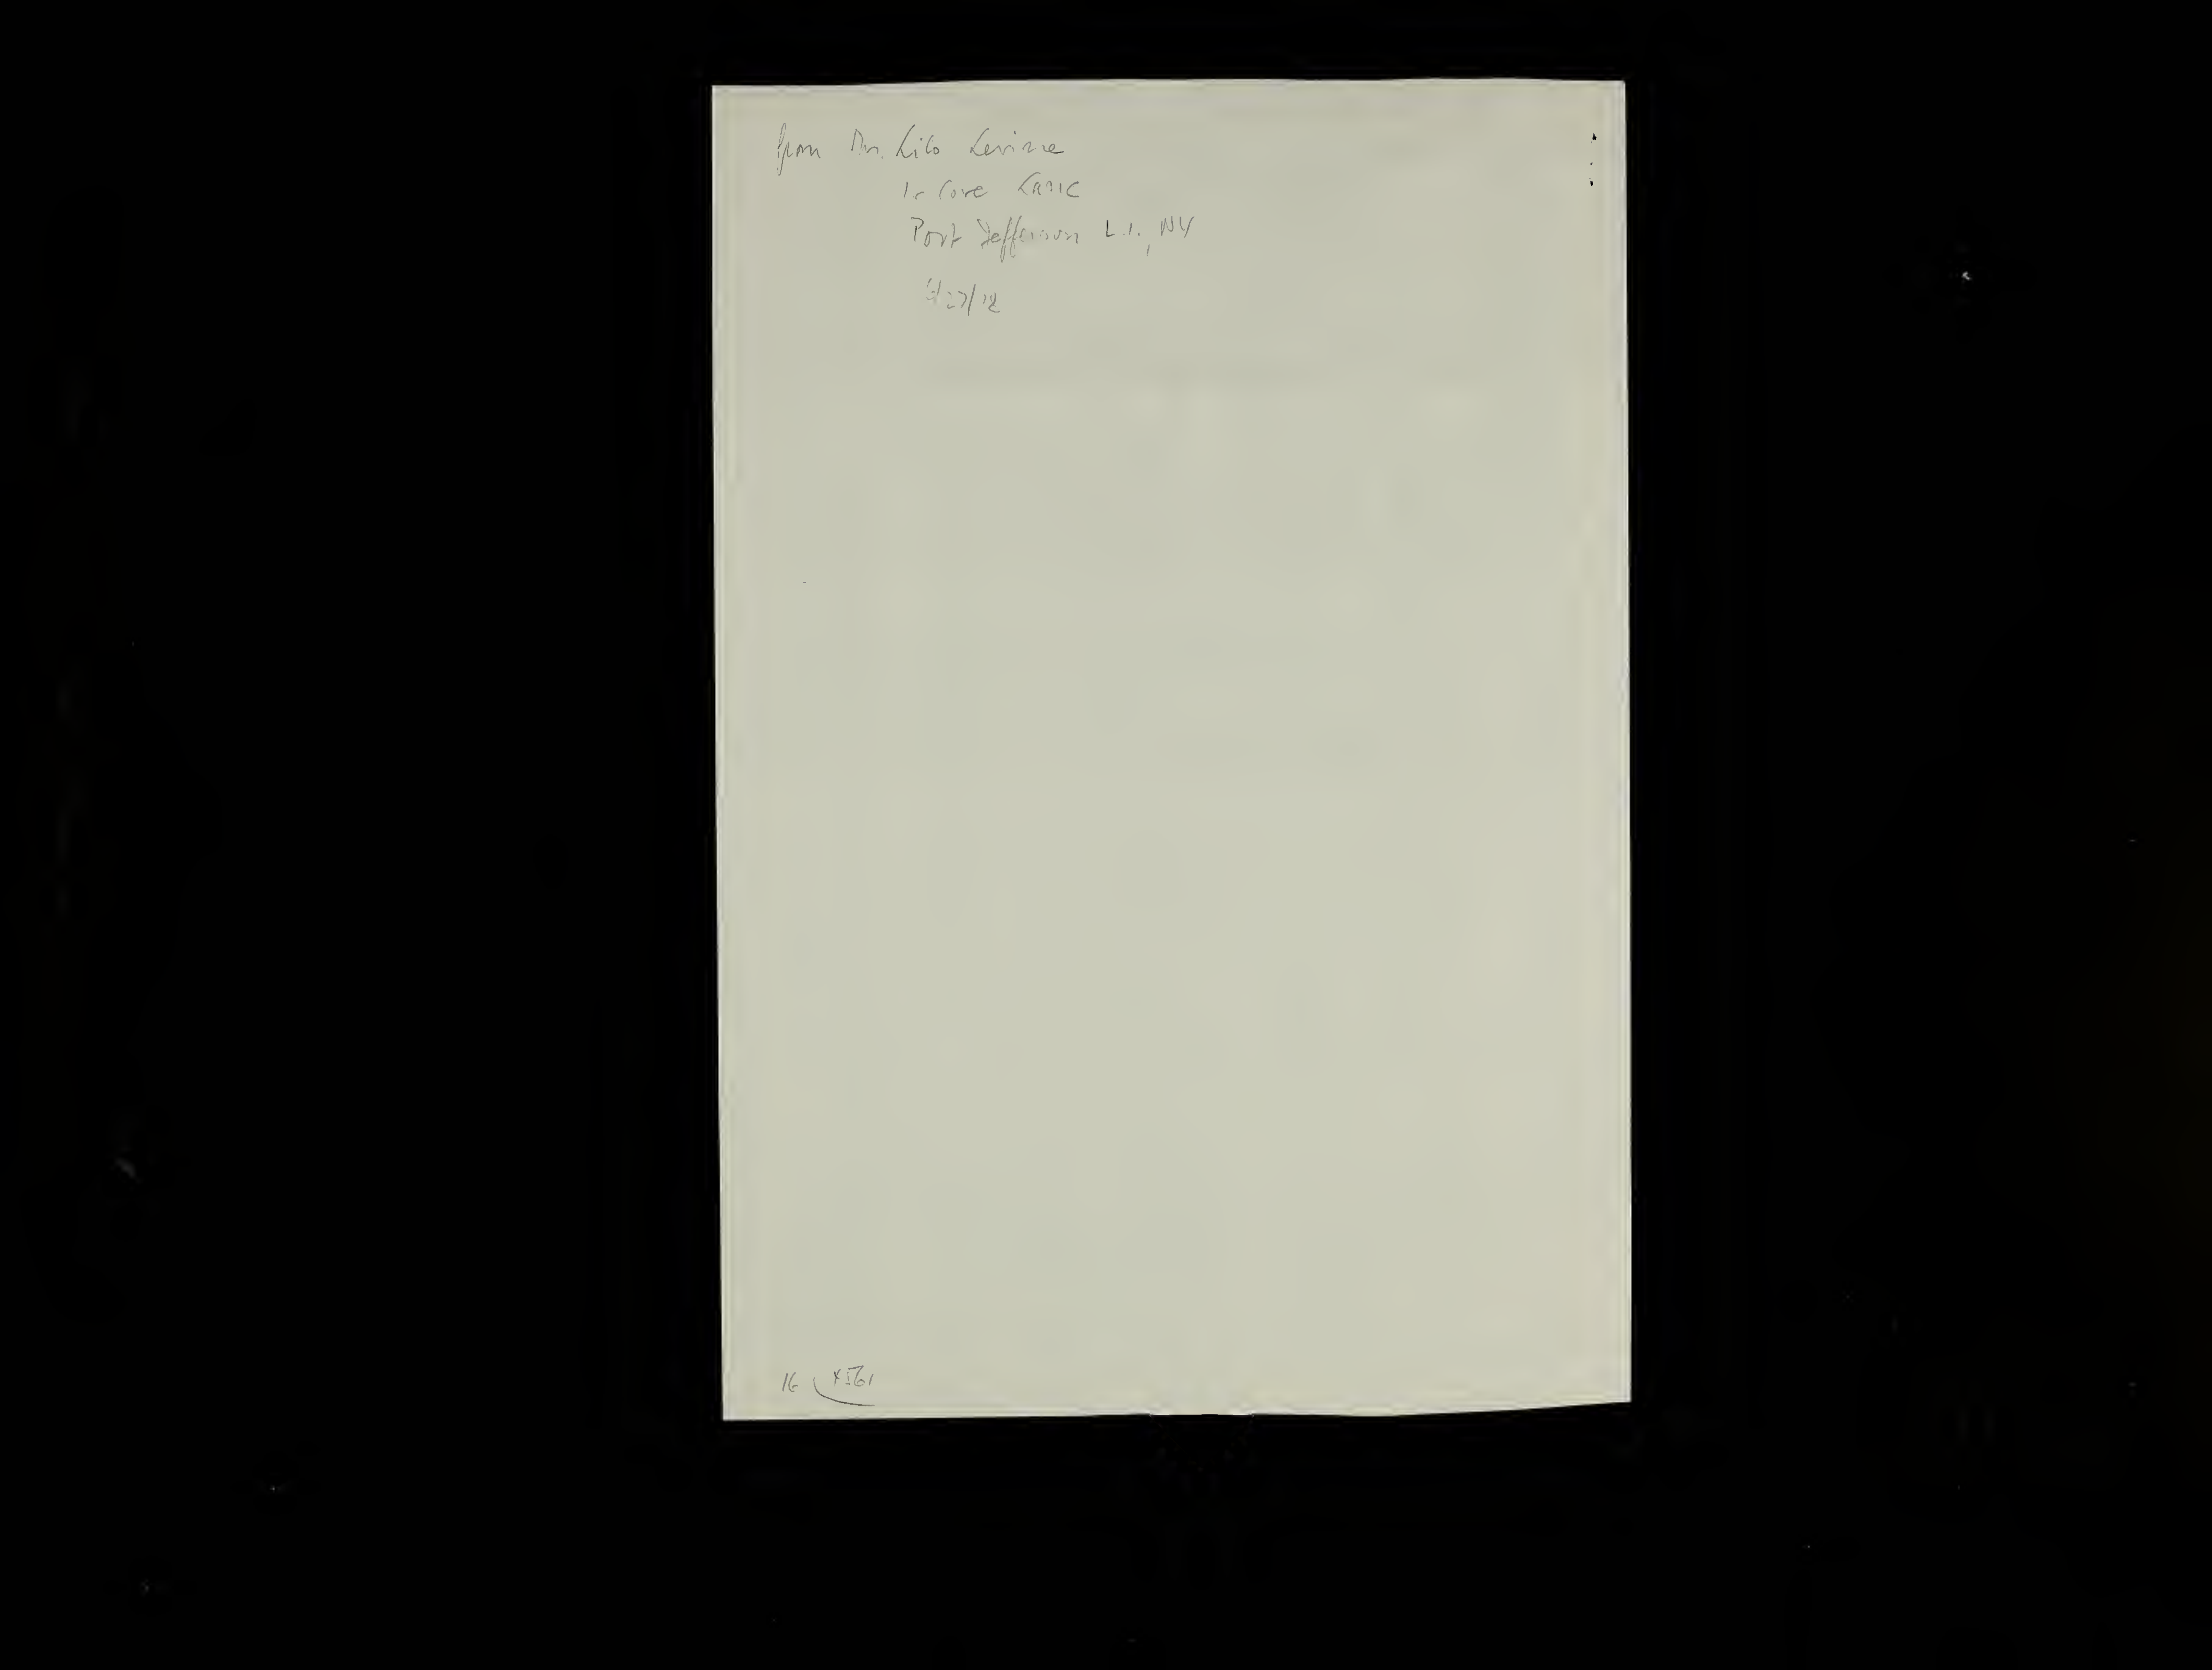 from Mrs. Lilo Levine
Cove Lane
Port Jefferson L.I., NY
/27/72
16